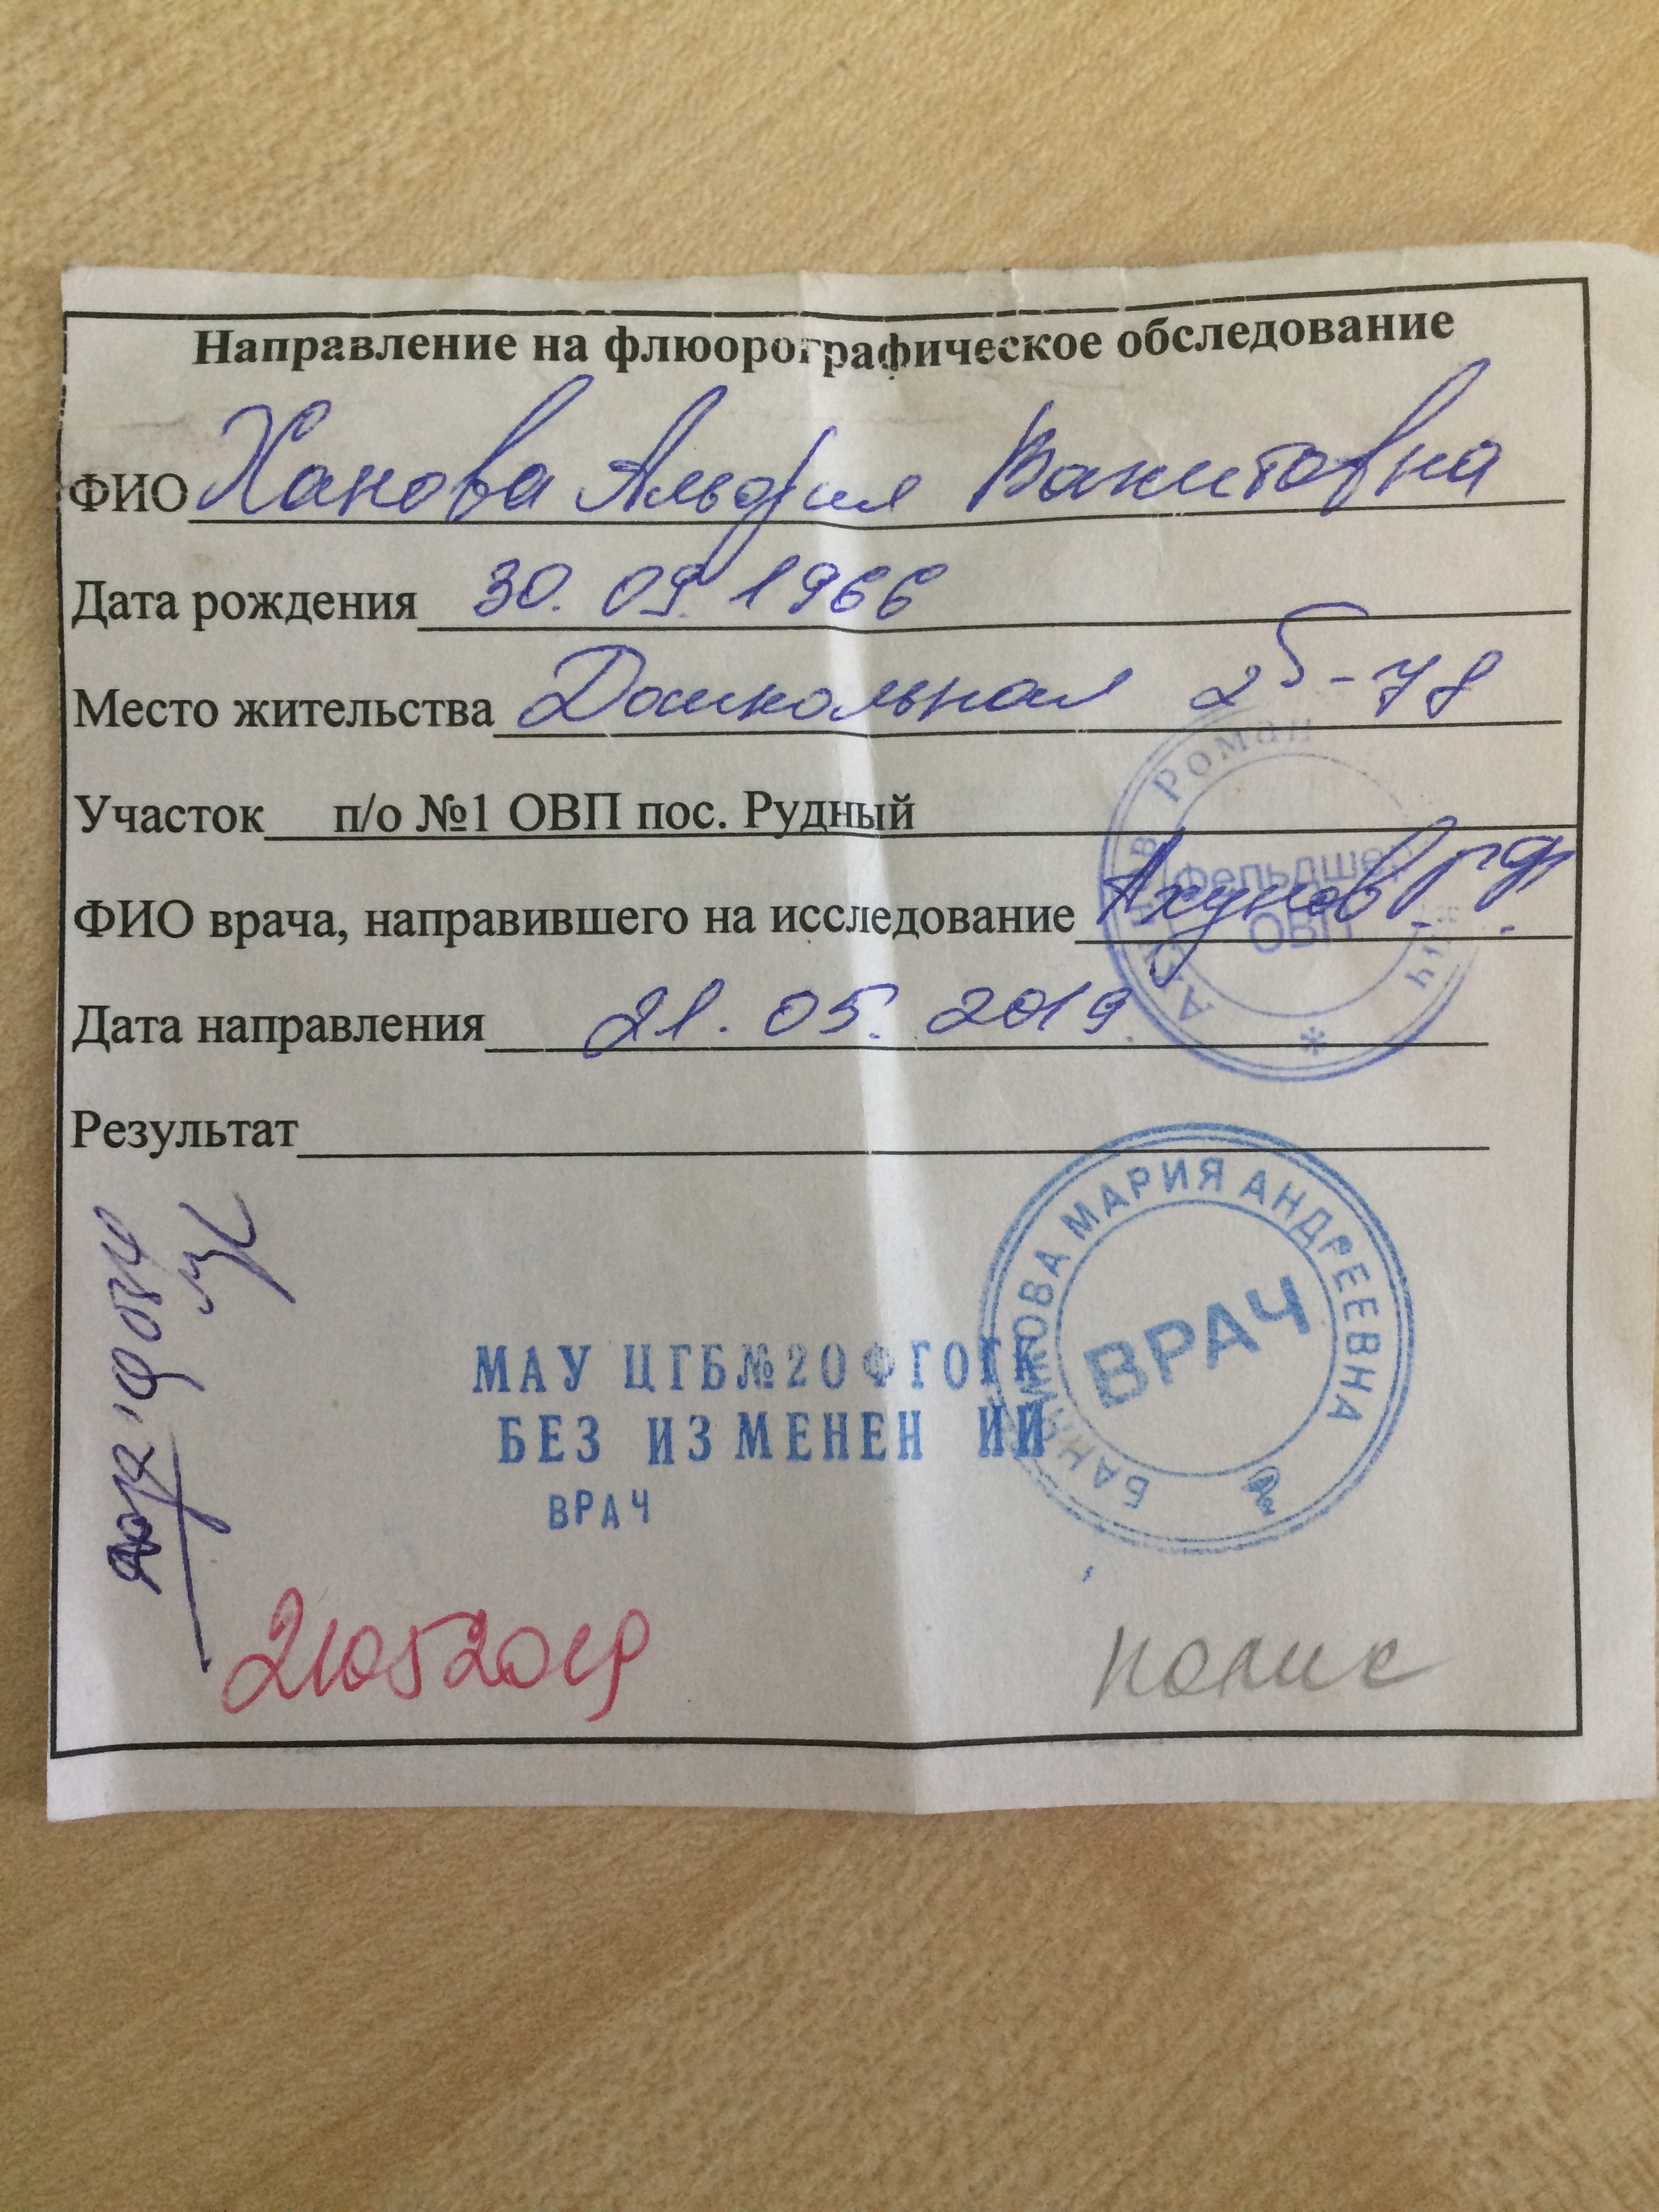 Направление на флюорографическое обследование
ФИО Ханова Альфия Вакитовна
Дата рождения 30.09.1966
Место жительства Дошкольная 25-78
Участок п/о №1 ОВП пос. Рудный
ФИО врача, направившего на исследование Ахунов Р.Ф.
Дата направления 21.05.2019
Роман
Фельдшер
ОВП
Результат
МАРИЯ АНДРЕЕВНА
ВРАЧ
МАУ ЦГБ№20 ФГ ОГК
БЕЗ ИЗМЕНЕНИЙ
ВРАЧ
21052019
полис